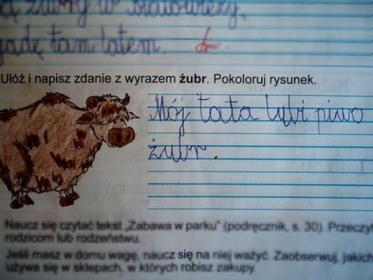 żubry w Białowieży,
jadę tam latem.
Ułóż i napisz zdanie z wyrazem żubr. Pokoloruj rysunek.
Mój tata lubi piwo
żubr.
Naucz się czytać tekst „Zabawa w parku” (podręcznik, s. 30). Przeczy
rodzicom lub rodzeństwu.
Jeśli masz w domu wagę, naucz się na niej ważyć. Zaobserwuj, jakich
używa się w sklepach, w których robisz zakupy.